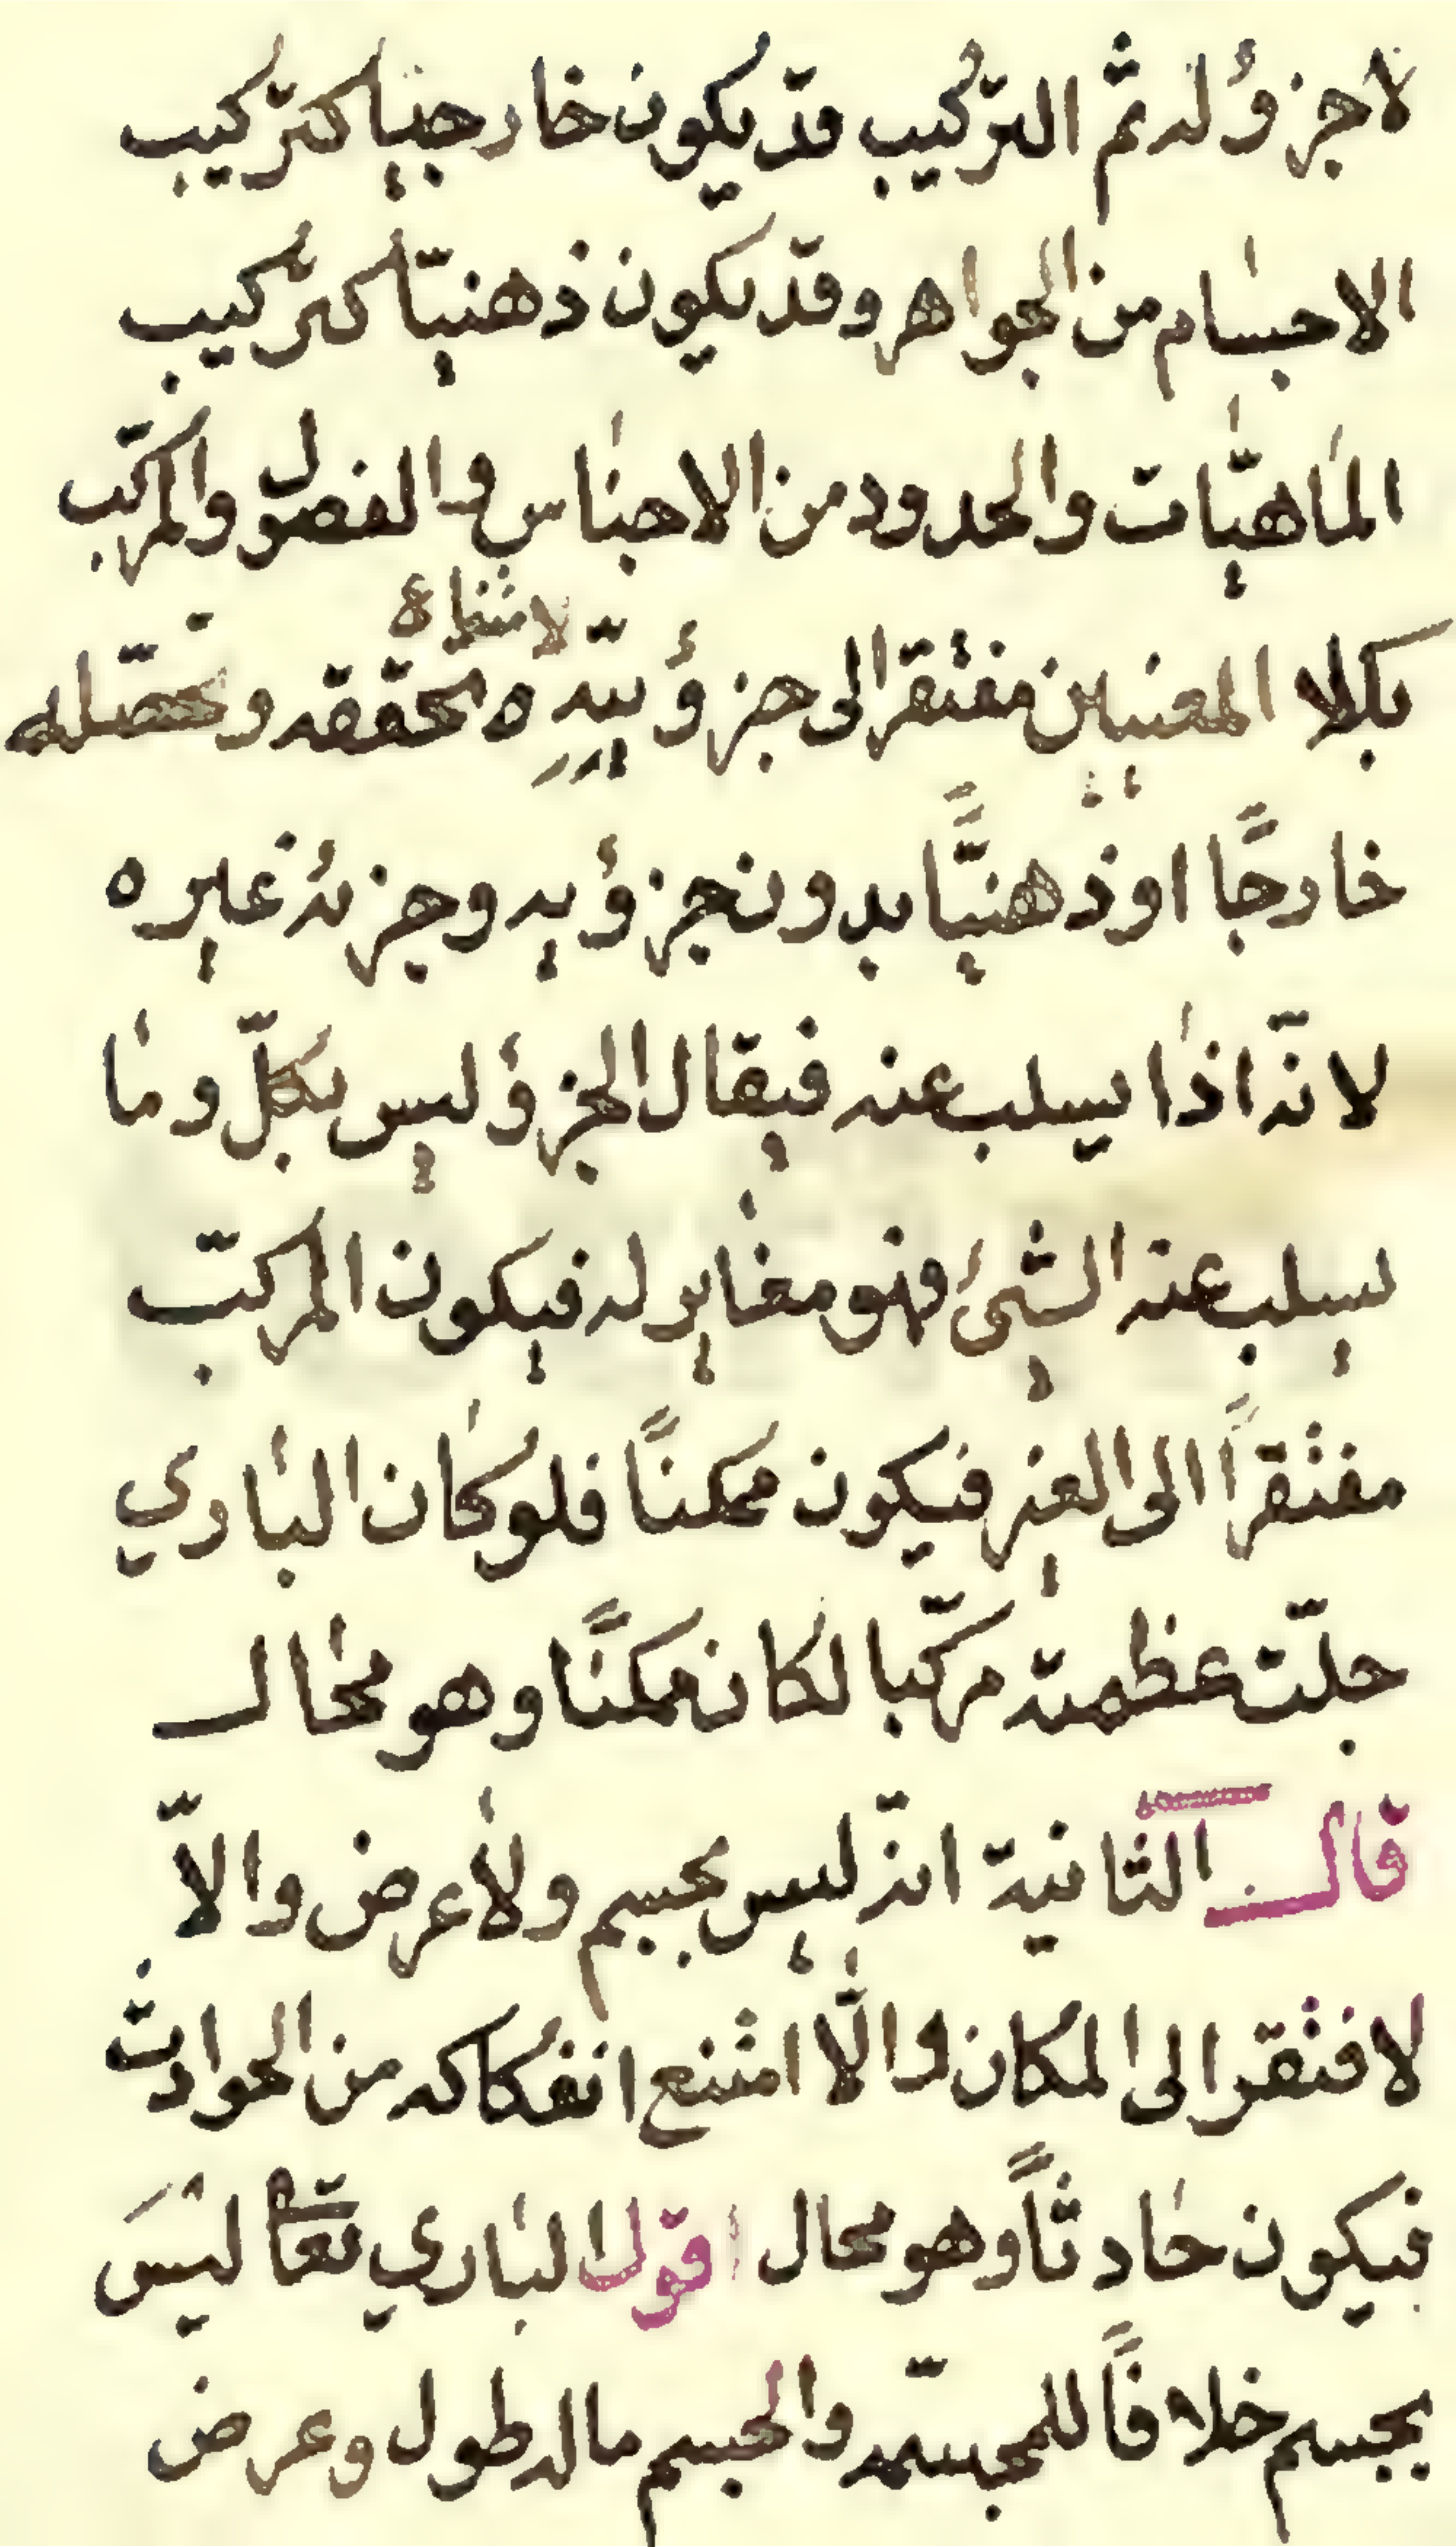 لا جزؤ له ثم التركيب قد يكون خارجيا كتركيب
الاجسام من الجواهر وقد يكون ذهنيّا كتركيب
الماهيّات والحدود من الاجناس والفصول والمركّب
بكلا المعنيين مفتقر الى جزؤيّه لامتناع تحقّقه وتحصّله
خارجًا او ذهنيًّا بدون جزؤيه وجزئه غيره
لانّه اذا يسلب عنه فيقال الجزؤ ليس بكلّ وما
يسلب عنه الشئ فهو مغاير له فيكون المركّب
مفتقراً الى الغير فيكون ممكنًا فلو كان الباري
جلّت عظمته مركّبا لكان ممكنًا وهو محال
قال الثانية انّه ليس بجسم ولا عرض والاّ
لافتقر الى المكان والّا امتنع انفكاكه من الحوادث
فيكون حادثاً وهو محال اقول الباري تعالى ليسَ
بجسم خلافاً للمجسّمه والجسم ما له طول وعرض